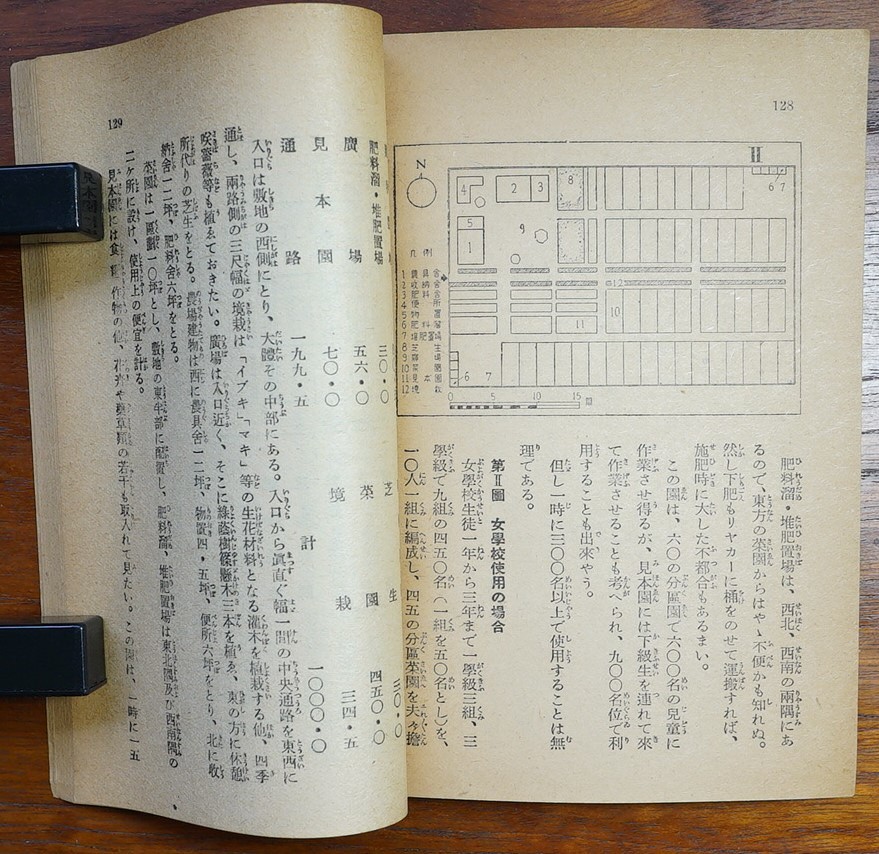 128
II
N
凡例
1
2
3
4
5
6
7
8
9
10
11
12
0
5
10
15
肥料溜・堆肥置場は、西北、西南の兩隅にあ
るので、東方の菜園からはやゝ不便かも知れぬ。
然し下肥もリヤカーに桶をのせて運搬すれば、
施肥時に大した不都合もあるまい。
この園は、六〇の分區園で六〇〇名の兒童に
作業させ得るが、見本園には下級生を連れて來
て作業させることも考へられ、九〇〇名位で利
用することも出來やう。
但し一時に三〇〇名以上で使用することは無
理である。
第Ⅱ圖 女學校使用の場合
女學校生徒一年から三年まで一學級三組、三
學級で九組の四五〇名(一組を五〇名とし)を、
一〇人一組に編成し、四五の分區菜園を夫々擔
129
肥料溜・堆肥置場 三〇・〇
廣場 五六・〇
見本園 七〇・〇
通路 一九九・五
芝生 三〇・〇
菜園 四五〇・〇
境栽 三四・五
計 一〇〇〇・〇
入口は敷地の西側にとり、大體その中部にある。入口から眞直ぐ幅一間の中央通路を東西に
通し、兩路側の三尺幅の境栽は「イブキ」「マキ」等の生花材料となる灌木を植栽する他、四季
咲薔薇等も植ゑておきたい。廣場は入口近く、そこに綠蔭樹篠懸木三本を植ゑ、東の方に休憩
所代りの芝生をとる。農場建物は西に農具舍一二坪、物置四・五坪、便所六坪をとり、北に收
納舍一二坪、肥料舍六坪をとる。
菜園は一區劃一〇坪とし、敷地の東半部に配置し、肥料溜、堆肥置場は東北隅及び西南隅の
二ケ所に設け、使用上の便宜を計る。
見本園には食糧作物の他、花卉や藥草類の若干も取入れて見たい。この園は、一時に一五